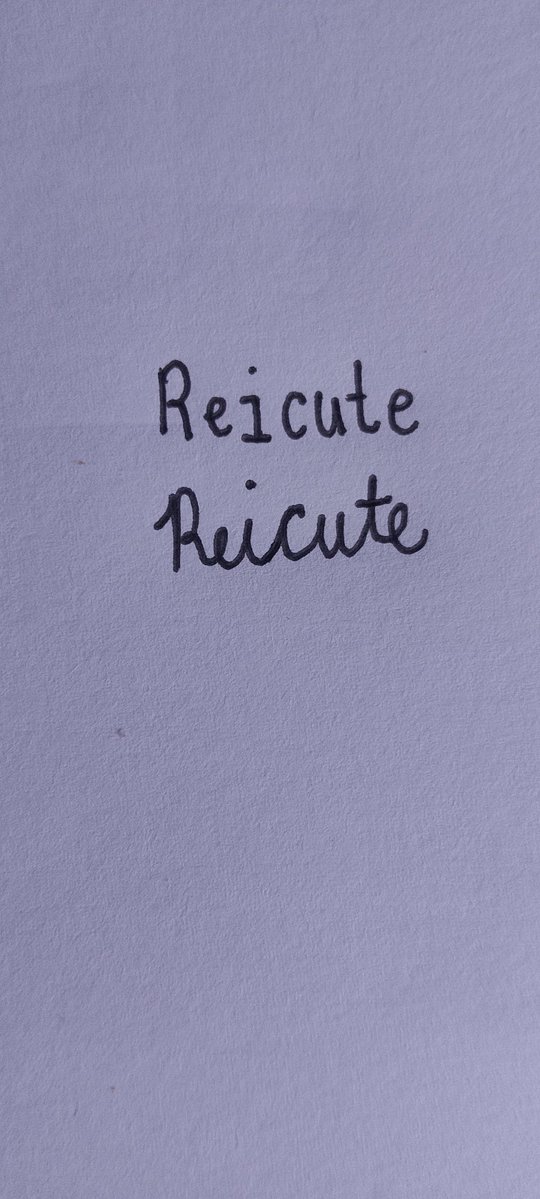 Reicute
Reicute